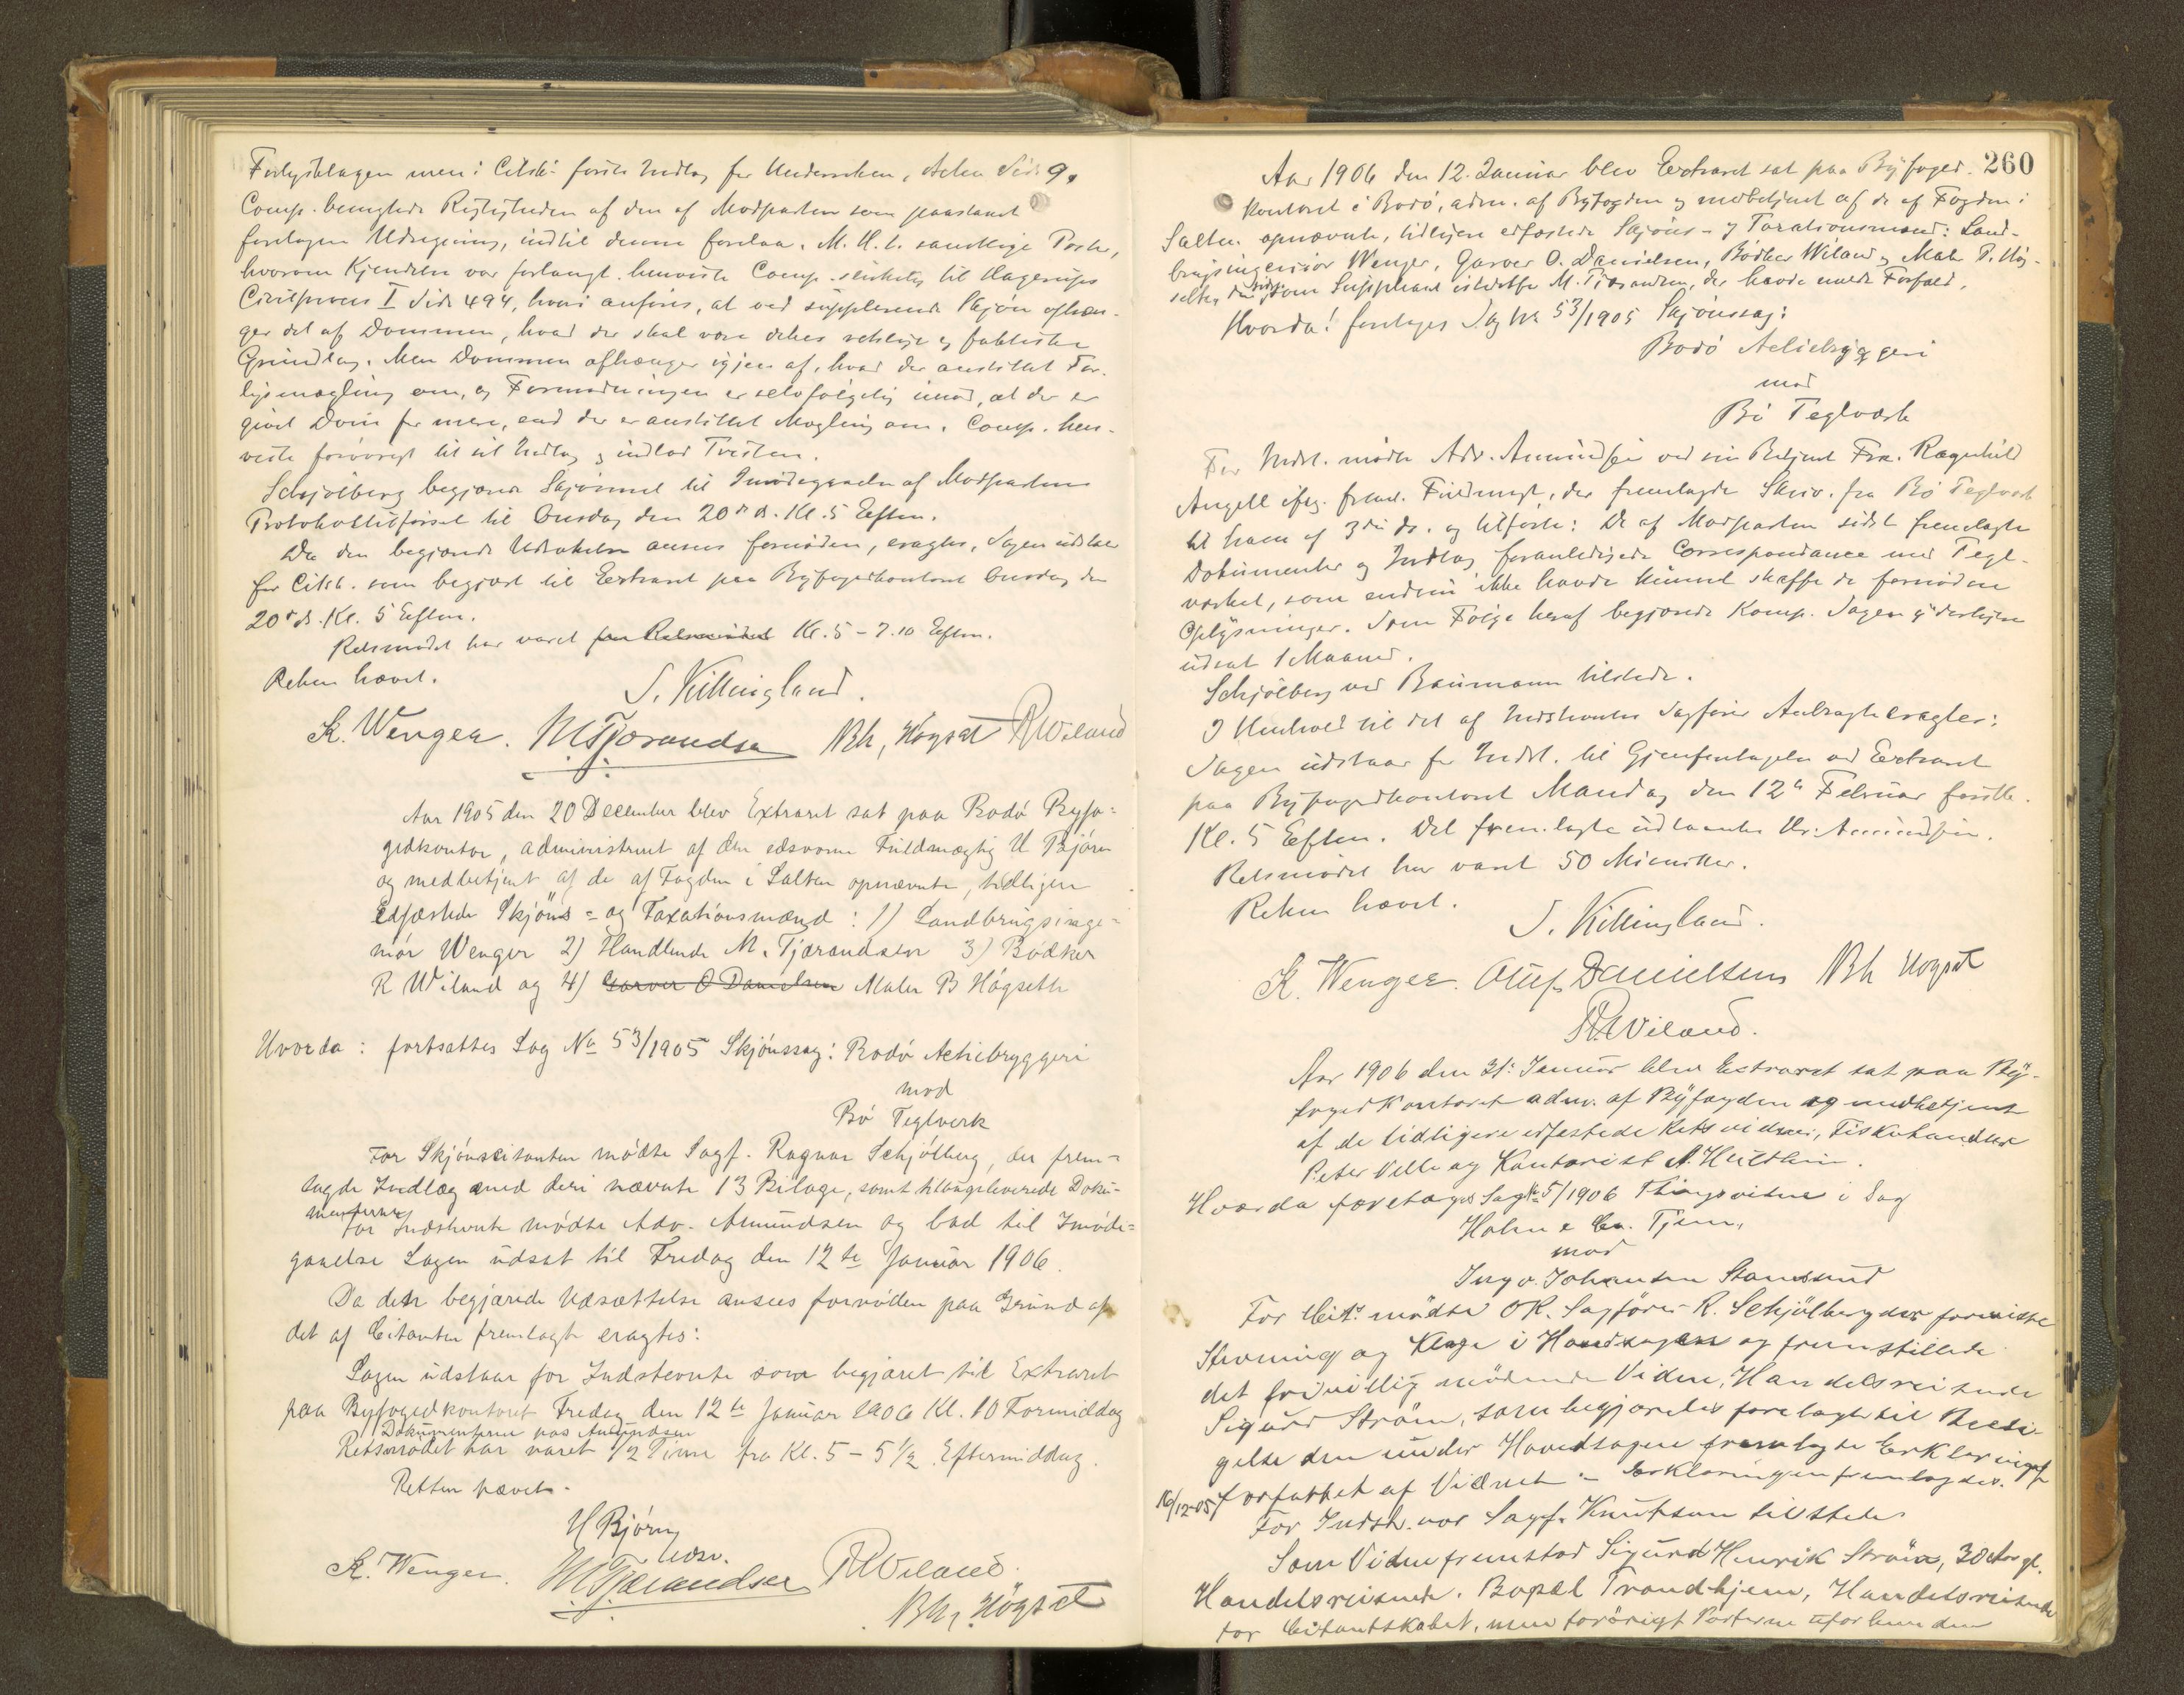 Forligsklagen men i Citsk. første Indlæg for Underretten, Acten Side 9.
Comp. benægtede Rigtigheden af den af Modparten som paastaaet
foretagen Udregning, indtil denne forelaa. M. H. t. samtlige Poster,
hvorom Kjendelse var forlangt henviste Comp. til Hagerups
Civilproces I Side 494, hvori anføres, at ved supplerende Skjøn afhæn-
ger det af Dommen, hvad der skal være dettes retslige og faktiske
Grundlag. Men Dommen afhænger igjen af, hvad der anstillet For-
ligsmægling om, og Formodningen er selvfølgelig imod, at der er
givet Dom for mere, end der er anstillet Mægling om. Comp. hen-
viste forøvrigt til sit Indlæg og indlod Tvisten.
Schjølberg begjærer Skjønnet til Imødegaaelse af Modpartens
Protokoltilførsel til Onsdag den 20de ds. Kl. 5 Eftm.
Da den begjærede Udsættelse ansees fornøden, eragtes, Sagen udstaar
for Citsk. som begjært til Extraret paa Byfogedkontoret Onsdag den
20de ds. Kl. 5 Eftm.
Retsmødet har varet fra Retsmødet Kl. 5 - 7.10 Eftm.
Retten hævet.
S. Killingland.
K. Wenger. M Tjærandsen Bh, Høgset R Wiland
Aar 1905 den 20 December blev Extraret sat paa Bodø Byfo-
gedkontor, administreret af den edsvorne Fuldmægtig H Bjørn
og medbetjent af de af Fogden i Salten opnævnte, tidligere
Edfæstede Skjøns- og Taxationsmænd: 1) Landbrugsinge-
niør Wenger 2) Handlende M. Tjærandsen 3) Bødker
R Wiland og 4) Garver O Danielsen Maler B Høgseth
Hvorda: fortsattes Sag No 53/1905 Skjønssag: Bodø Actiebryggeri
mod
Bø Teglverk
For Skjønscitanten mødte Sagf. Ragnar Schjølberg, der frem-
lagde Indlæg med deri nævnte 13 Bilage, samt tilbageleverede Doku-
menterne
For Indstevnte mødte Adv. Amundsen og bad til Imøde-
gaaelse Sagen udsat til Fredag den 12te Januar 1906.
Da den begjærede Udsættelse ansees fornøden paa Grund af
det af Citanten fremlagte eragtes:
Sagen udstaar for Indstevnte som begjæret til Extraret
paa Byfogedkontoret Fredag den 12te Januar 1906 Kl. 10 Formiddag
Dokumenterne hos Amundsen
Retsmødet har varet 1/2 Time fra Kl. 5 - 5 1/2 Eftermiddag.
Retten hævet.
H Bjørn
K. Wenger. M Tjærandsen R Wiland.
Bh, Høgset
260
Aar 1906 den 12. Januar blev Extraret sat paa Byfoged-
kontoret i Bodø, adm. af Byfogden og medbetjent af de af Fogden i
Salten opnævnte, tidligere edfæstede Skjøns- og Taxationsmænd: Land-
brugsingeniør Wenger, Garver O. Danielsen, Bødker Wiland og Maler B. Høg-
seth, som Suppleant istedetfor M. Tjærandsen, der havde meldt Forfald.
Hvorda! foretages Sag No 53/1905 Skjønssag:
Bodø Actiebryggeri
mod
Bø Teglværk
For Indst. mødte Adv. Amundsen ved sin Betjent Frk. Ragnhild
Angell iflg. freml. Fuldmagt, der fremlagde Skriv. fra Bø Teglværk
til ham af 3die ds. og tilførte: De af Modparten sidst fremlagte
Dokumenter og Indlæg foranledigede Correspondance med Tegl-
værket, som endnu ikke havde kunnet skaffe de fornødne
Oplysninger. Som Følge heraf begjærede Komp. Sagen yderligere
udsat 1 Maaned.
Schjølberg ved Baumann tilstede.
I Henhold til det af Indstevntes Sagfører Anbragte eragtes:
Sagen udstaar for Indst. til Gjenforetagelse ved Extraret
paa Byfogedkontoret Mandag den 12te Februar førstk.
Kl. 5 Eftm. Det fremlagte udlaantes Hr. Amundsen.
Retsmødet har varet 50 Minutter.
Retten hævet.
S. Killingland.
K. Wenger. Oluf Danielsen Bh Høgset
R Wiland.
Aar 1906 den 31. Januar blev Extraret sat paa By-
fogedkontoret adm. af Byfogden og medbetjent
af de tidligere edfæstede Retsvidner, Fiskehandler
Peter Velle og Kontorist A. Hulthin.
Hvorda foretages Sag No 5/1906 Thingsvidne i Sag
Holm & Co. Tjem,
mod
Ingv. Johansen Stamsund
For Cits. mødte OR. Sagfører R. Schjølberg der foreviste
Stevning og Klage i Hovedsagen og fremstillede
det frivillig mødende Vidne, Handelsreisende
Sigurd Strøm, som begjæredes forelagt til Beedi-
gelse den under Hovedsagen fremlagte Erklæring af
16/12-05 forfattet af Vidnet - Erklæringen fremlagdes.
For Indst. var Sagf. Knutsen tilstede
Som Vidne fremstod Sigurd Henrik Strøm, 30 Aar gl.
Handelsreisende. Bopæl Trondhjem, Handelsreisende
for Citantskabet, men forøvrigt Parterne uforbunden